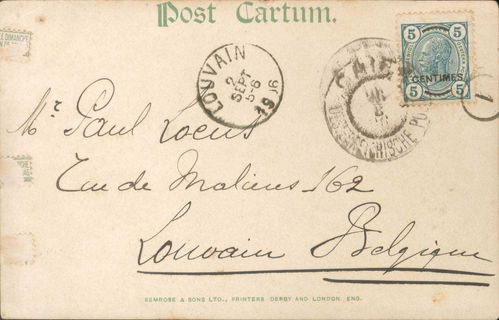 Post Cartum.
LOUVAIN
2
SEPT
5-6
1906
5 5
CENTIMES
5 5
Mr. Paul Locus
Rue de Malines 162
Louvain Belgique
BEMROSE & SONS LTD., PRINTERS DERBY AND LONDON, ENG.